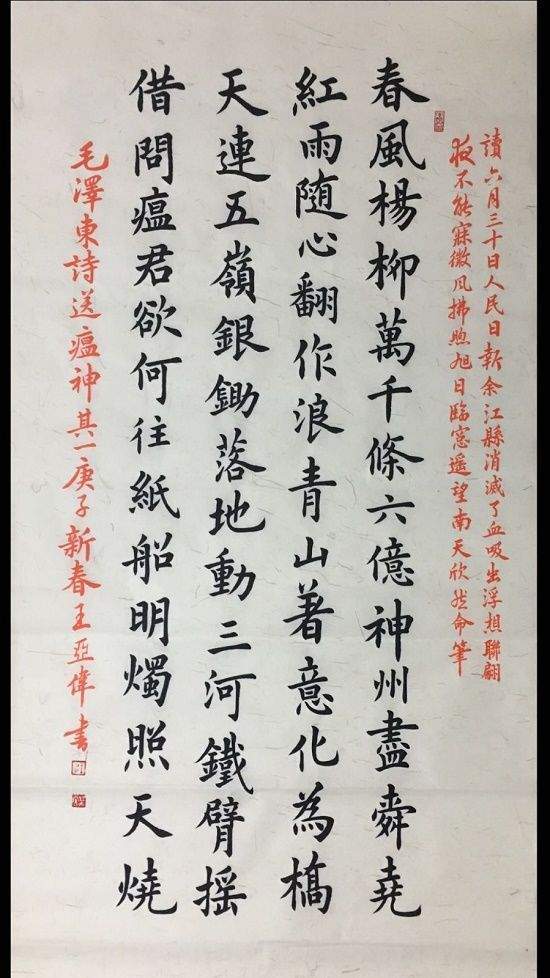 讀六月三十日人民日報余江縣消滅了血吸虫浮想聯翩
夜不能寐微風拂煦旭日臨窗遥望南天欣然命筆
春風楊柳萬千條六億神州盡舜堯
紅雨隨心翻作浪青山著意化為橋
天連五嶺銀鋤落地動三河鐵臂搖
借問瘟君欲何往紙船明燭照天燒
毛澤東詩送瘟神其一庚子新春王亞偉書